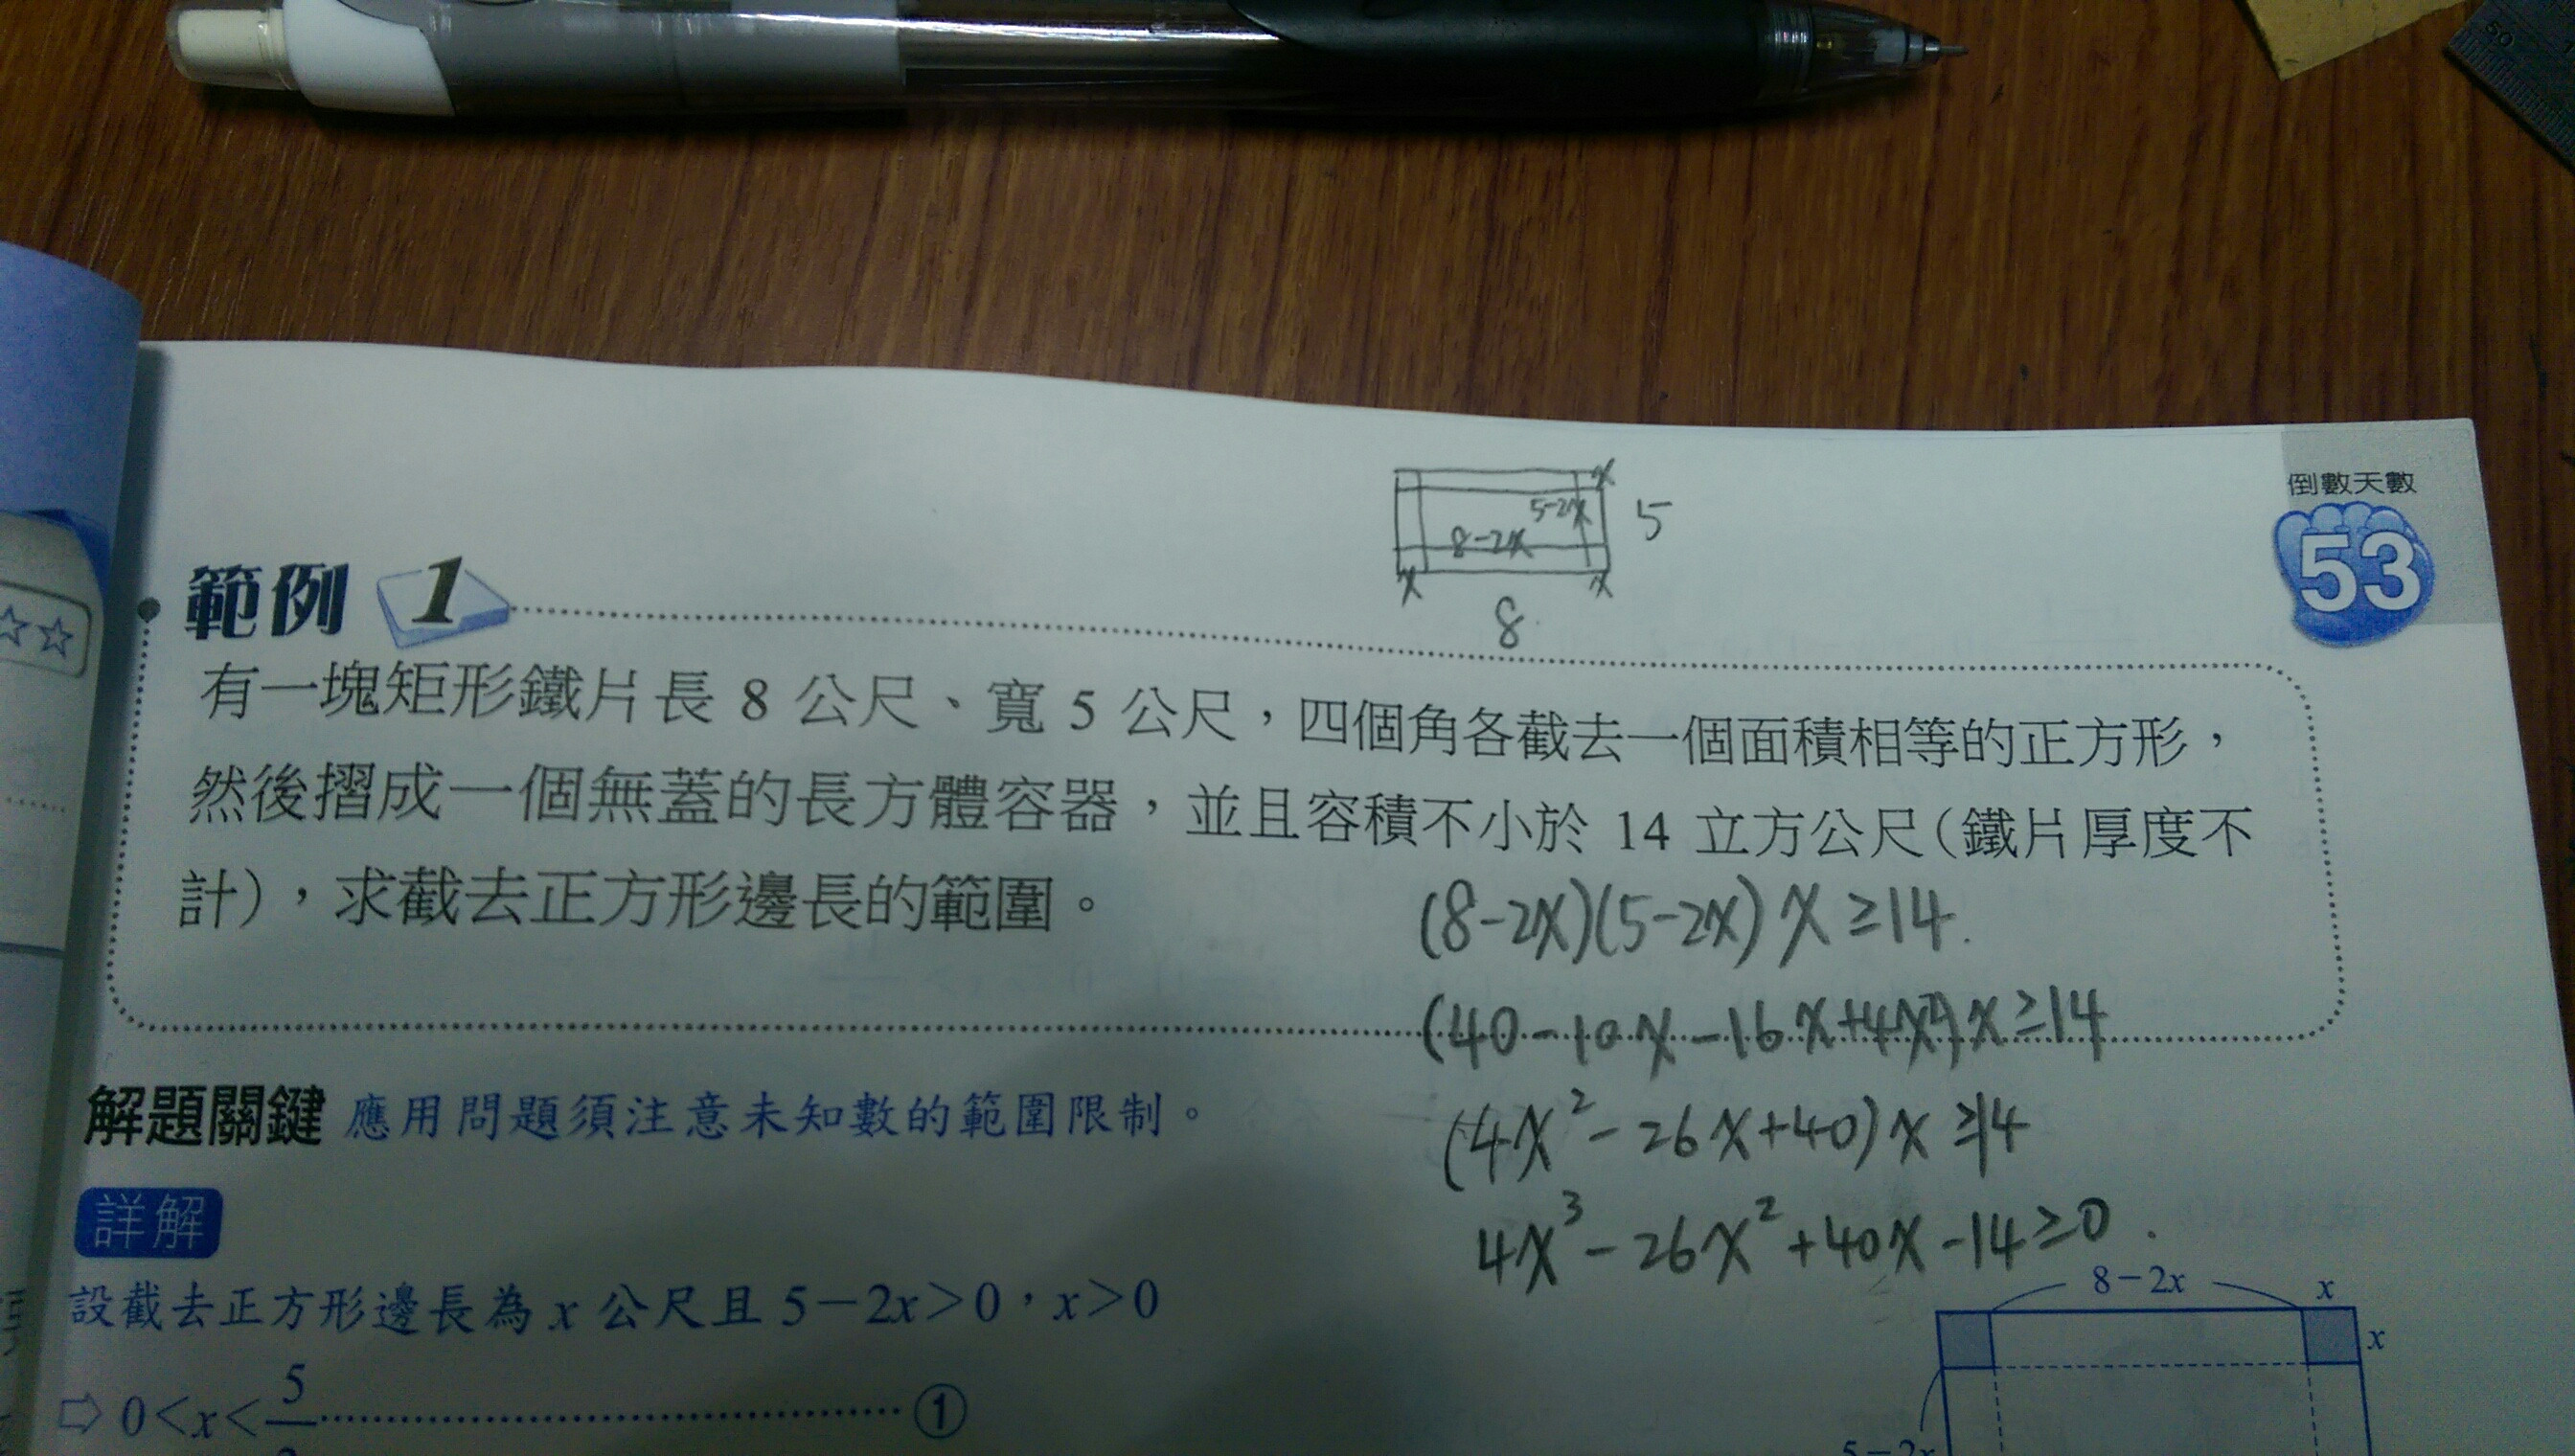 50
x
5-2x
5
8-2x
x
x
8
倒數天數
53
範例 1
有一塊矩形鐵片長 8 公尺、寬 5 公尺，四個角各截去一個面積相等的正方形，
然後摺成一個無蓋的長方體容器，並且容積不小於 14 立方公尺（鐵片厚度不
計），求截去正方形邊長的範圍。
(8-2x)(5-2x)x≥14.
(40-10x-16x+4x²)x≥14
(4x²-26x+40)x≥14
4x³-26x²+40x-14≥0.
解題關鍵 應用問題須注意未知數的範圍限制。
詳解
設截去正方形邊長為 x 公尺且 5－2x＞0，x＞0
⇨ 0＜x＜5/2 ①
8－2x
x
x
5－2x
☆☆